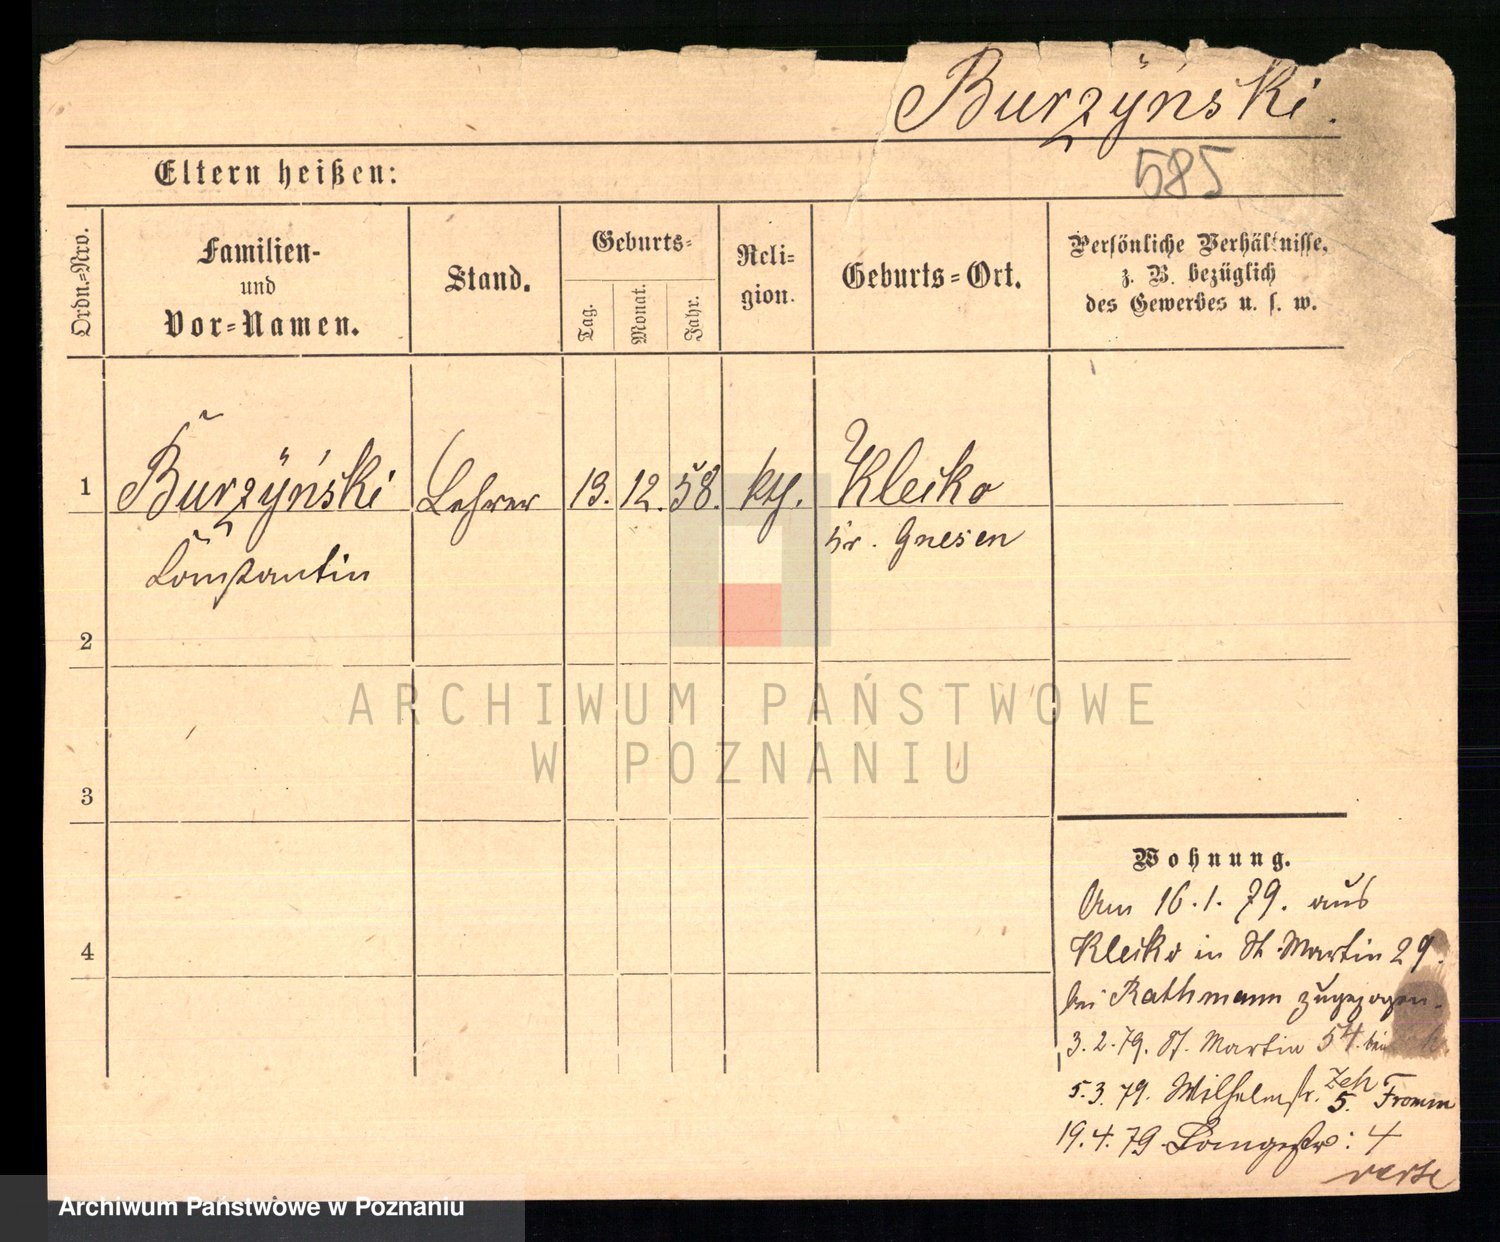 Burzÿński.
585
Eltern heißen:
Ordn.-Nro.
Familien-
und
Vor-Namen.
Stand.
Geburts-
Tag.
Monat.
Jahr.
Reli-
gion.
Geburts-Ort.
Persönliche Verhältnisse,
z. B. bezüglich
des Gewerbes u. s. w.
1
Burzÿński
Lehrer
13.
12.
58.
kth.
Klecko
Kr. Gnesen
Constantin
2
3
4
ARCHIWUM PAŃSTWOWE
W POZNANIU
Wohnung.
Am 16.1.79. aus
Klecko in St. Martin 29.
bei Rathmann zugezogen.
3.2.79. St. Martin 54. bei
Zeh
5.3.79. Wilhelmstr. 5. Fromm
19.4.79 Langestr: 4
verte
Archiwum Państwowe w Poznaniu